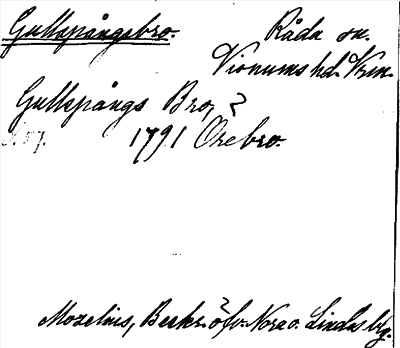 Gullspångsbro. Råda sn.
Visnums hd. Vrm.
Gullspångs Bro, ?
S. 57. 1791 Örebro.
Mozelius, Beskr. öfv. Nora o. Lindes blg.